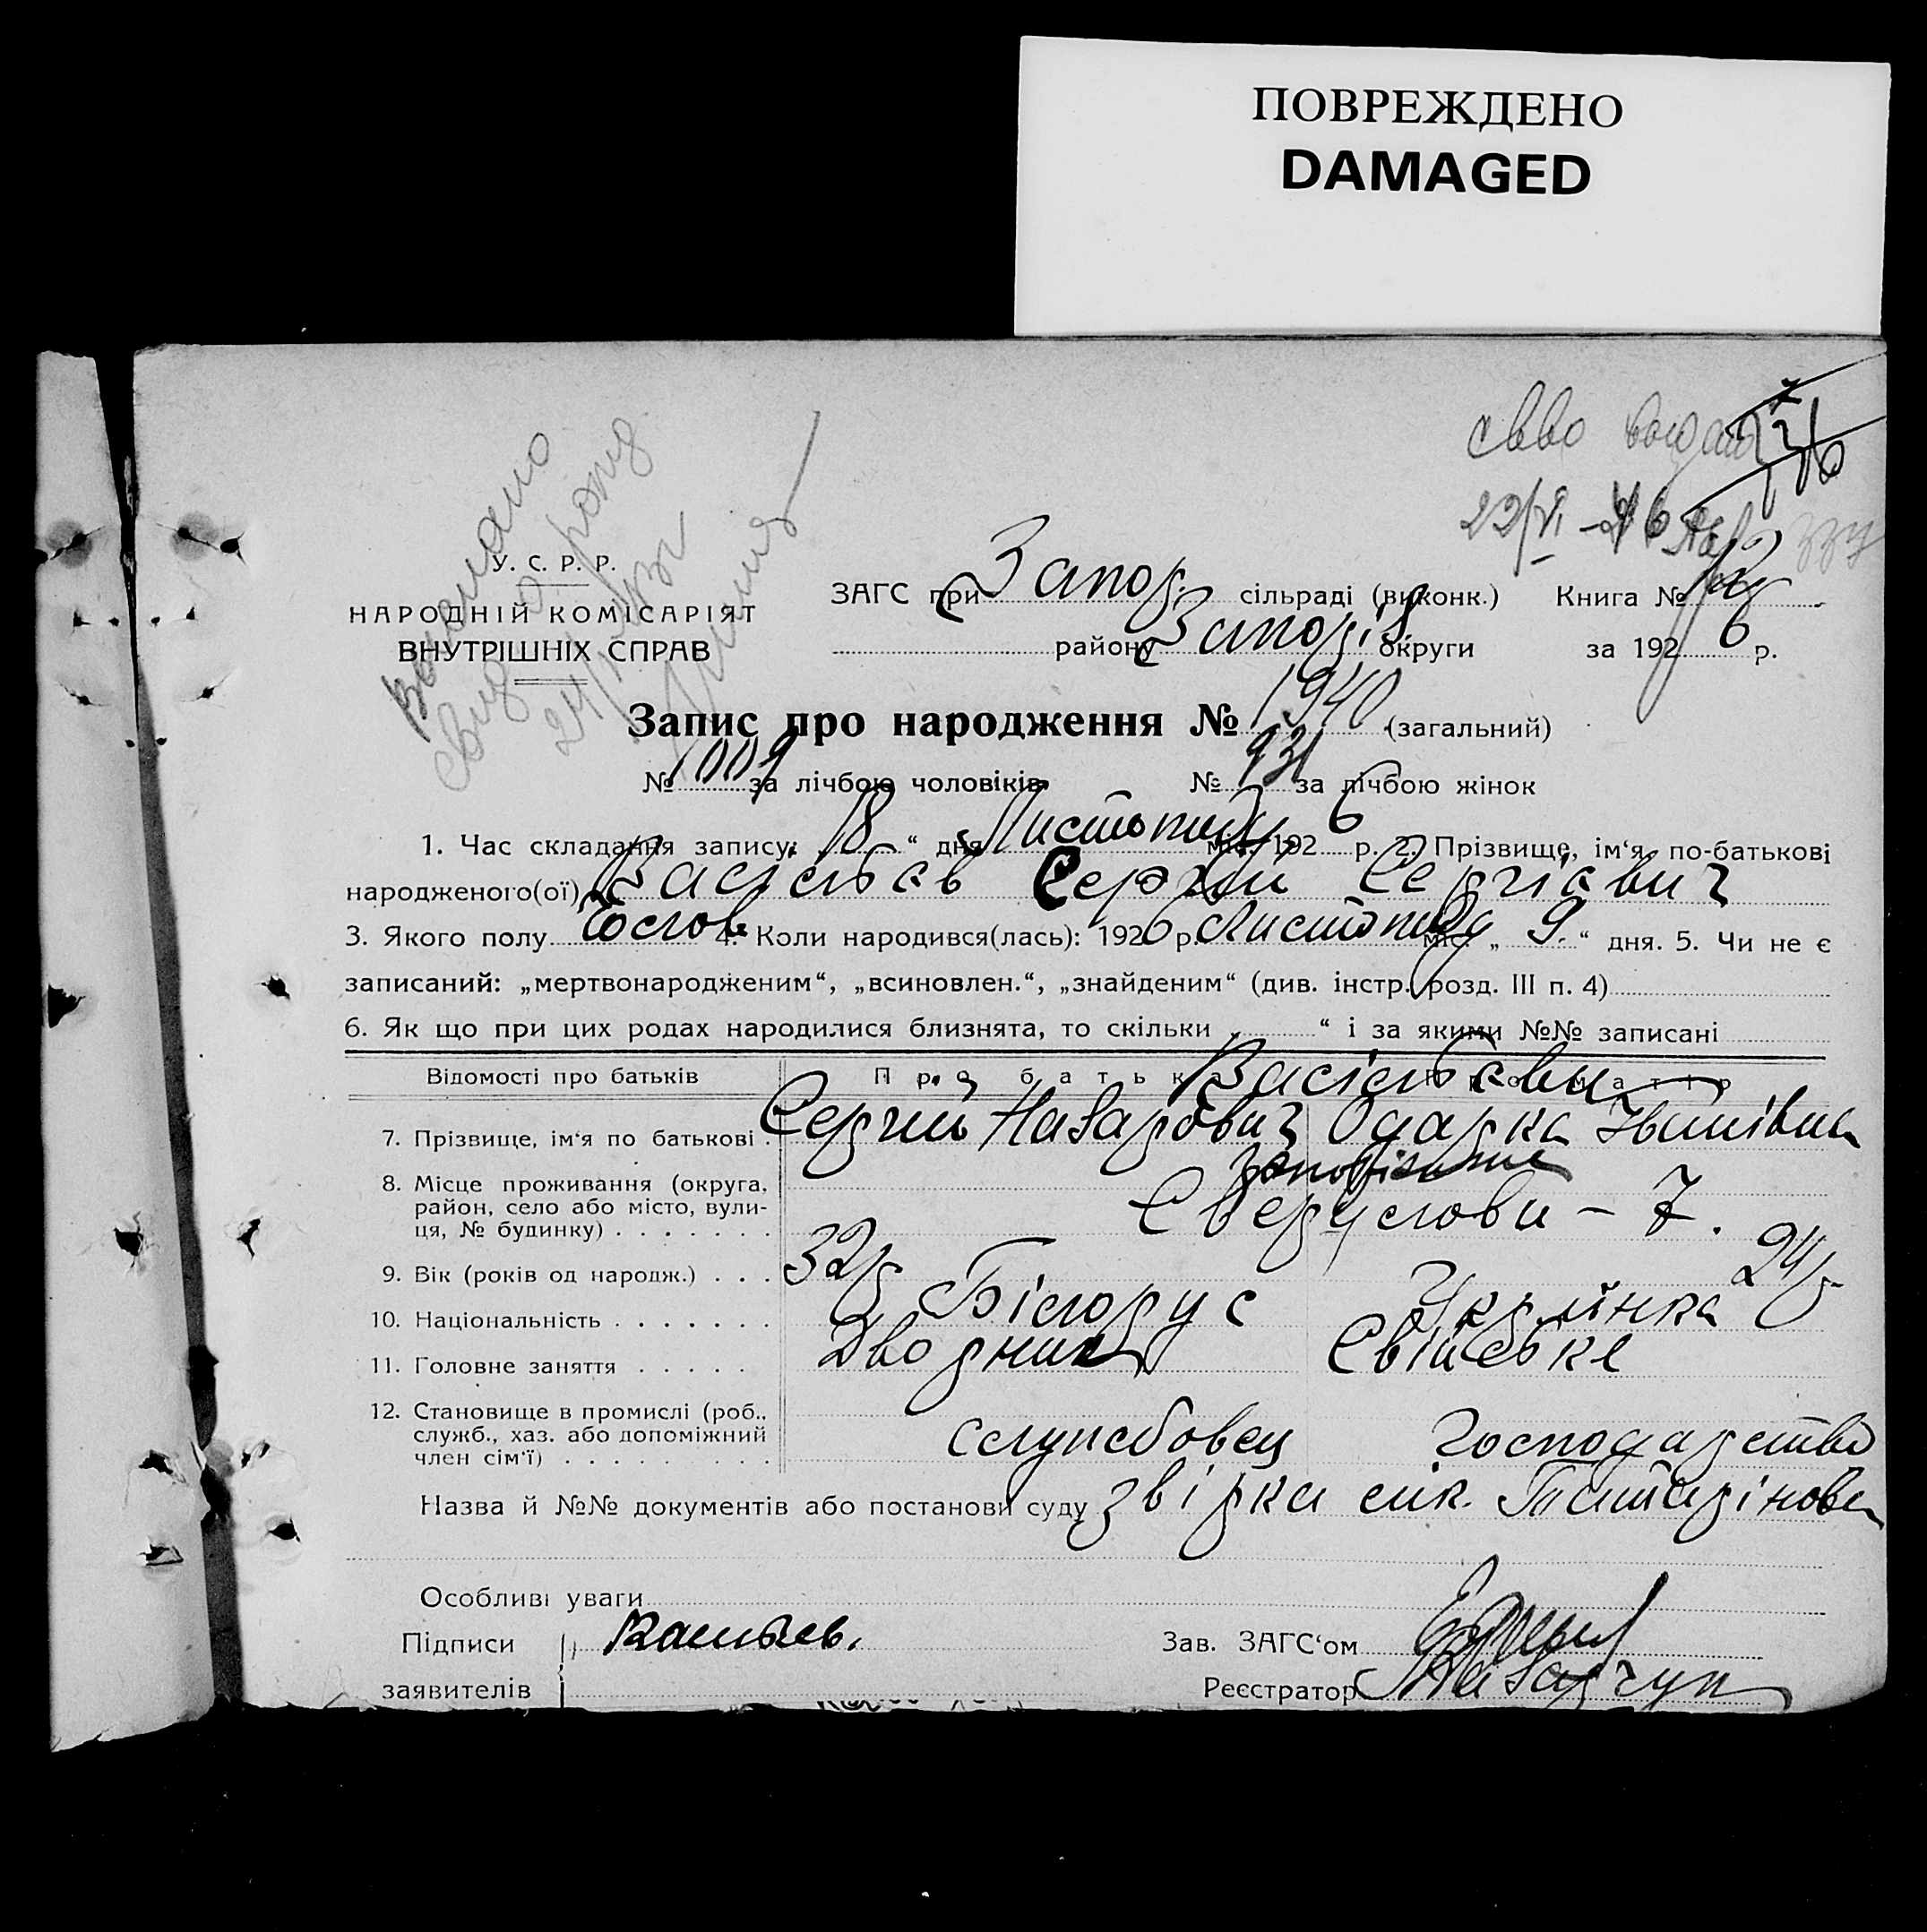 ПОВРЕЖДЕНО
DAMAGED
У. С. Р. Р.
НАРОДНІЙ КОМІСАРІЯТ
ВНУТРІШНІХ СПРАВ
22/VI - 46
ЗАГС при Запор. сільраді (виконк.) Книга №
району Запоріз округи за 1926 р.
Запис про народження № 1940 (загальний)
№ 1009 за лічбою чоловіків № 931 за лічбою жінок
1. Час складання запису: „18“ дня Листопаду міс. 1926 р. 2. Прізвище, ім‘я, по-батькові
народженого(ої) Васільєв Сергій Сергієвич
3. Якого полу Чолов 4. Коли народився(лась): 1926 р. Листопаду міс. „9.“ дня. 5. Чи не є
записаний: „мертвонародженим“, „всиновлен.“, „знайденим“ (див. інстр. розд. III п. 4)
6. Як що при цих родах народилися близнята, то скільки „ “ і за якими №№ записані
Відомості про батьків Про батька Про матір
Васільєви
7. Прізвище, ім‘я по батькові . Сергій Назарович Одарка Іванівна
8. Місце проживання (округа, район, село або місто, вулиця, № будинку) . . . . . . . Запоріжжя
Свердлови – 7.
9. Вік (років од народж.) . . . 32 р 24 р
10. Національність . . . . . . . Білорус Українка
11. Головне заняття . . . . . Дворник Свійське
12. Становище в промислі (роб., служб., хаз. або допоміжний член сім‘ї) . . . . . . . . . Служебовец Господарство
Назва й №№ документів або постанови суду звірка
Особливі уваги
Підписи Васильев. Зав. ЗАГС‘ом
заявителів Реєстратор Назарчук